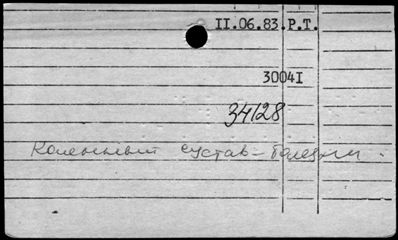 II.06.83.P.T.
3004I
34128
Коленный сустав - болезни.